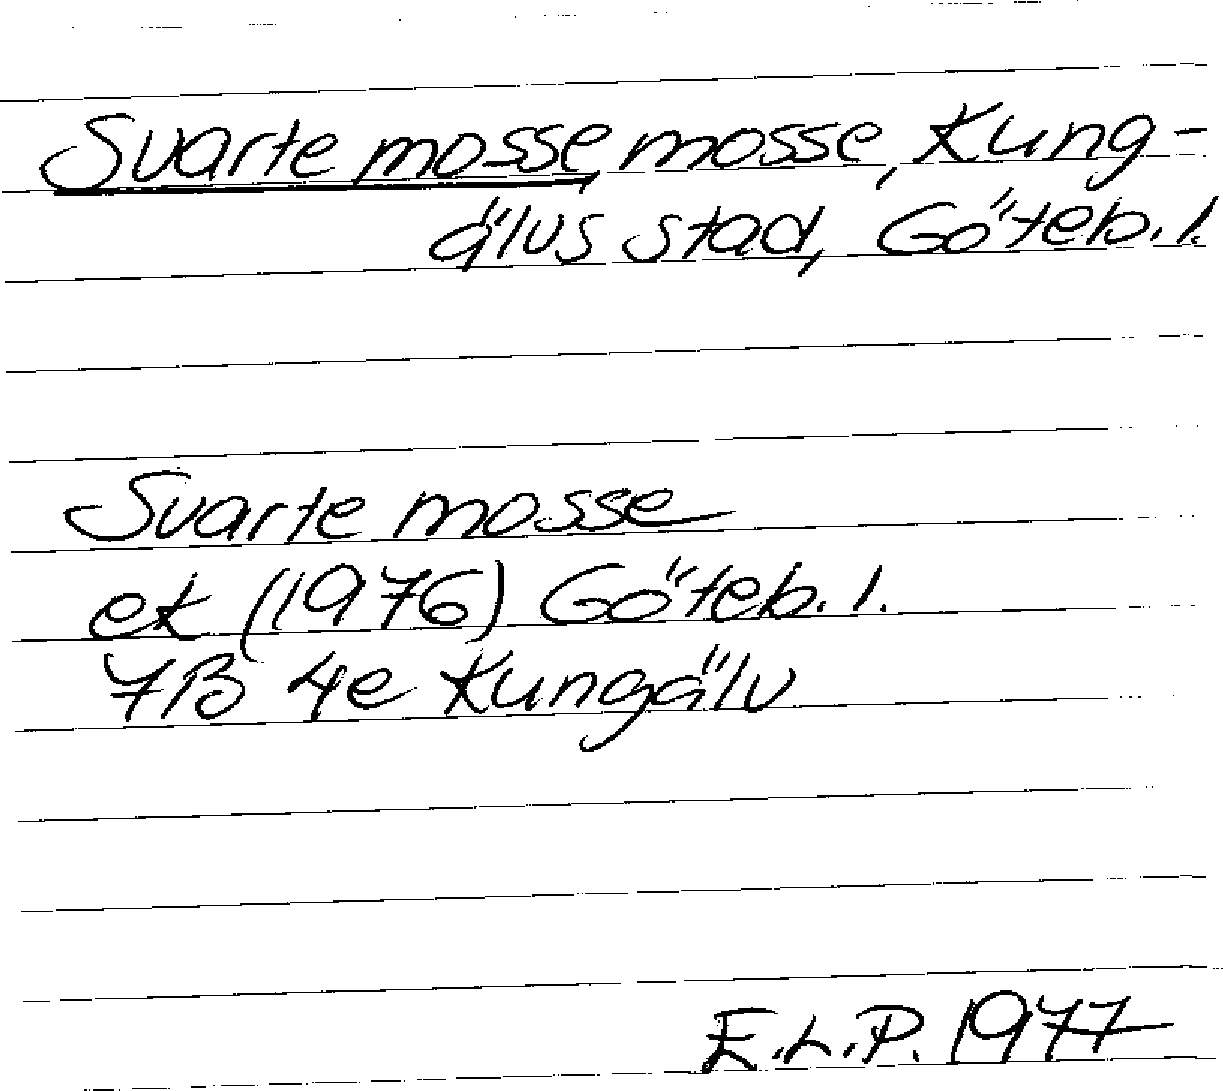 Svarte mosse, mosse, Kung-
älvs stad, Göteb. l.
Svarte mosse
ek (1976) Göteb. l.
7B 4e Kungälv
E.L.P. 1977